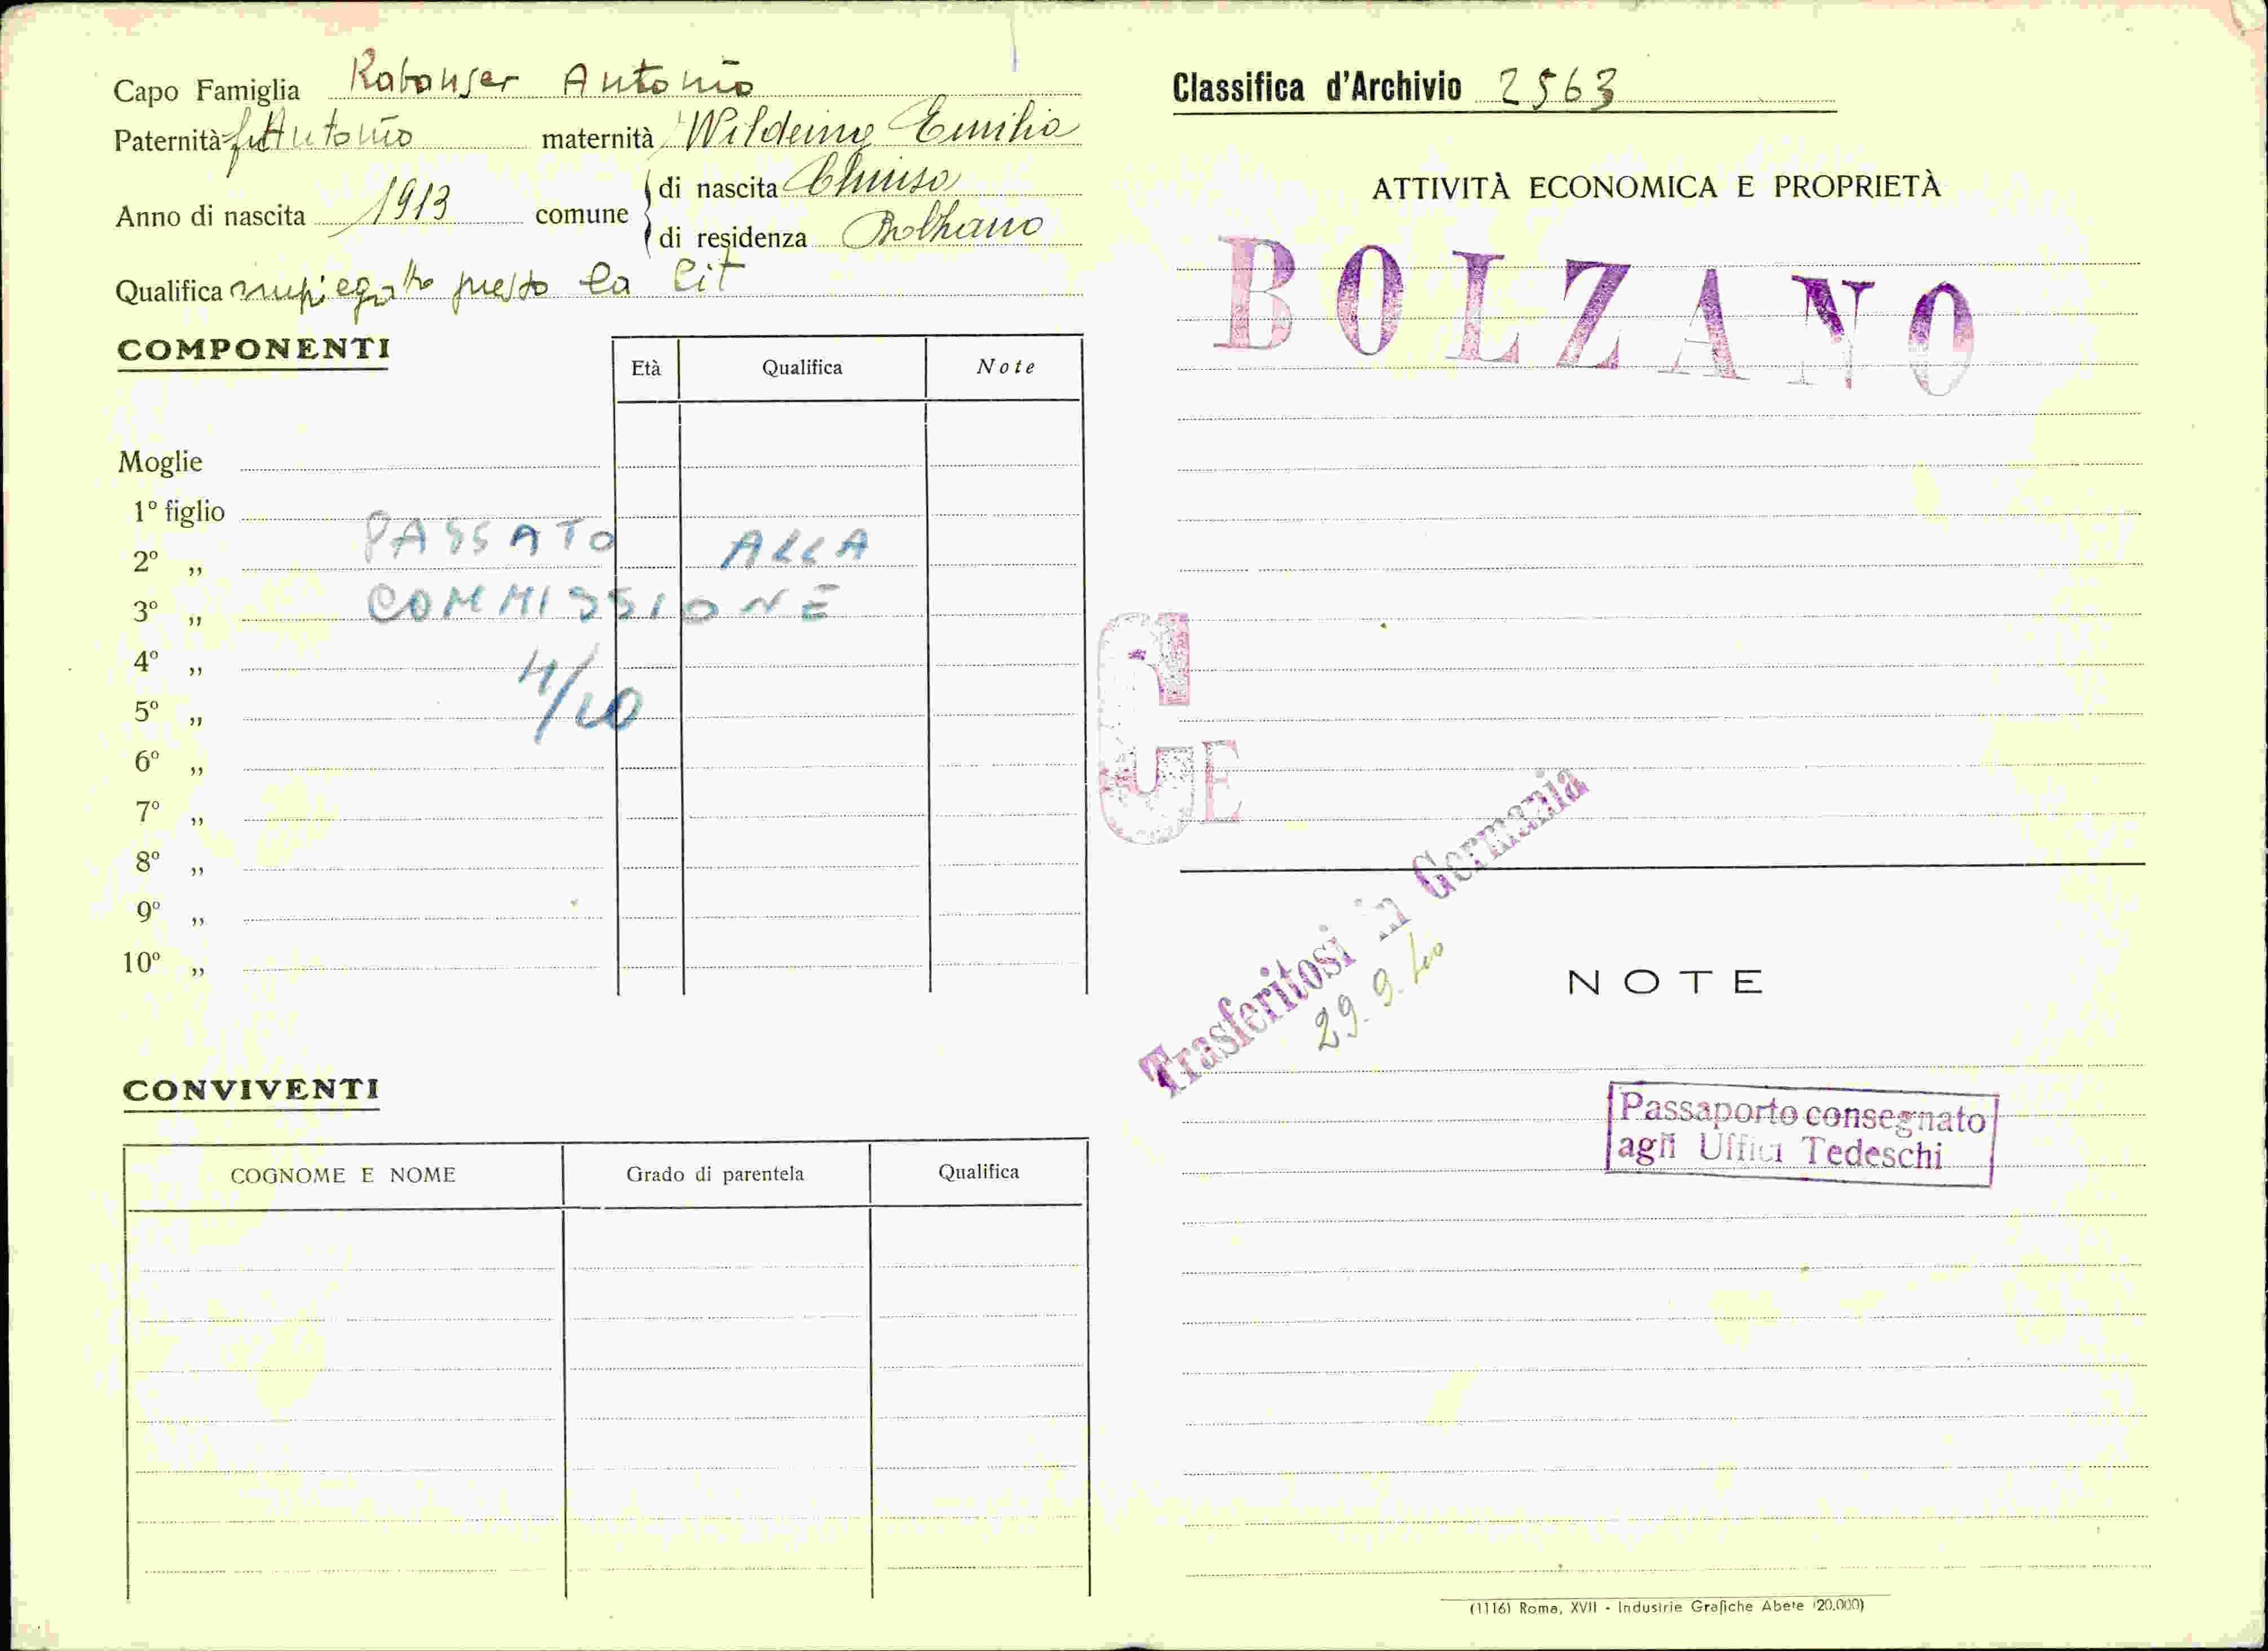 Capo Famiglia Rabanser Antonio
Paternità fu Antonio maternità Wildeing Emilia
Anno di nascita 1913 comune di nascita Chiusa
di residenza Bolzano
Qualifica impiegato presso la cit
COMPONENTI
Età Qualifica Note
Moglie
1º figlio
PASSATO ALLA
2º „
COMMISSIONE
3º „
4º „
4/10
5º „
6º „
7º „
8º „
9º „
10º „
CONVIVENTI
COGNOME E NOME Grado di parentela Qualifica
Classifica d'Archivio 2563
ATTIVITÀ ECONOMICA E PROPRIETÀ
BOLZANO
G
E
Trasferitosi in Germania
29.9.40
NOTE
Passaporto consegnato
agli Uffici Tedeschi
(1116) Roma, XVII - Industrie Grafiche Abete (20.000)